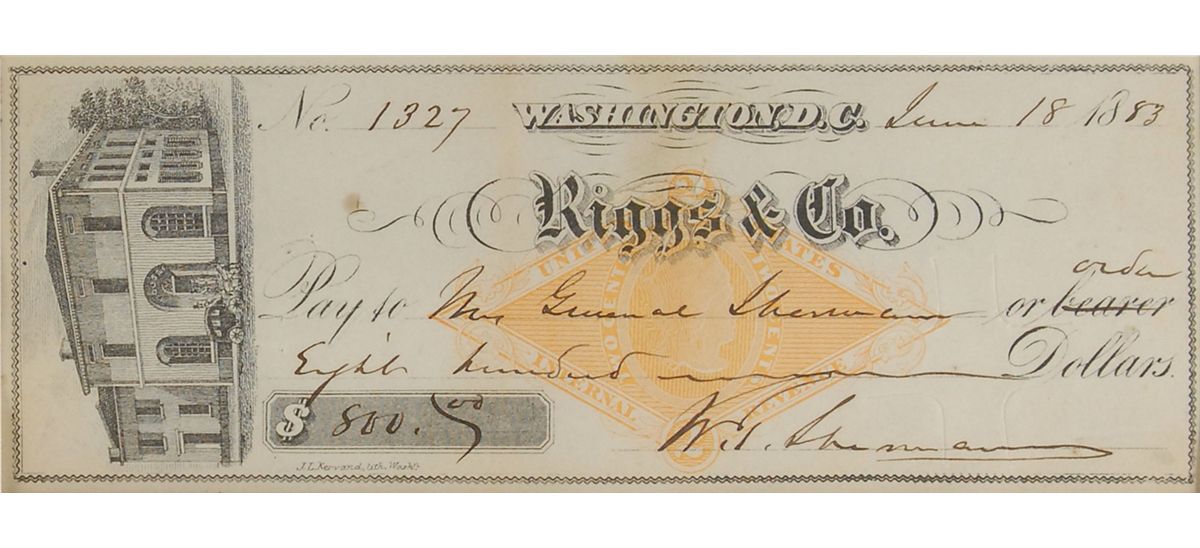 No. 1327 WASHINGTON D.C. June 18 1883
Riggs & Co.
UNITED STATES
order
Pay to Mrs General Sherman or bearer
Eight hundred Dollars.
INTERNAL REVENUE
$ 800.00
W. T. Sherman
J. L. Kervand, lith. Wash.